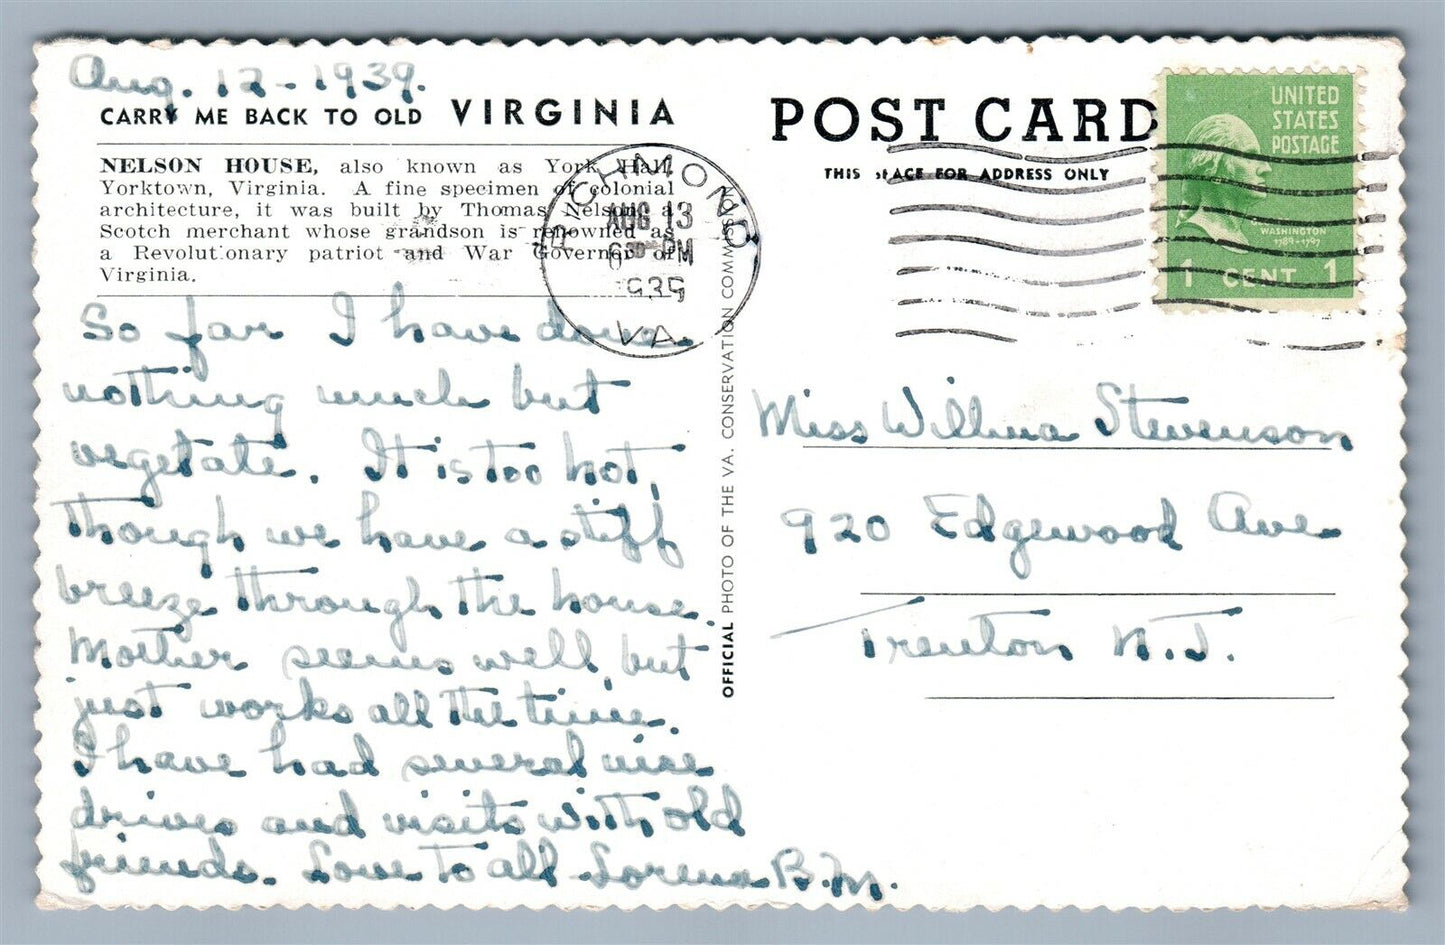 Aug. 12-1939.
CARRY ME BACK TO OLD VIRGINIA
NELSON HOUSE, also known as York Hall,
Yorktown, Virginia. A fine specimen of colonial
architecture, it was built by Thomas Nelson, a
Scotch merchant whose grandson is renowned as
a Revolutionary patriot and War Governor of
Virginia.
So far I have done
nothing much but
vegetate. It is too hot,
though we have a stiff
breeze through the house.
Mother seems well, but
just works all the time.
I have had several nice
drives and visits with old
friends. Love to all Lorena B.M.
OFFICIAL PHOTO OF THE VA. CONSERVATION COMMISSION
RICHMOND
AUG 13
630 PM
1939
VA.
POST CARD
THIS SPACE FOR ADDRESS ONLY
UNITED
STATES
POSTAGE
WASHINGTON
1789-1797
1 CENT 1
Miss Wilma Stevenson
920 Edgewood Ave
Trenton N.J.